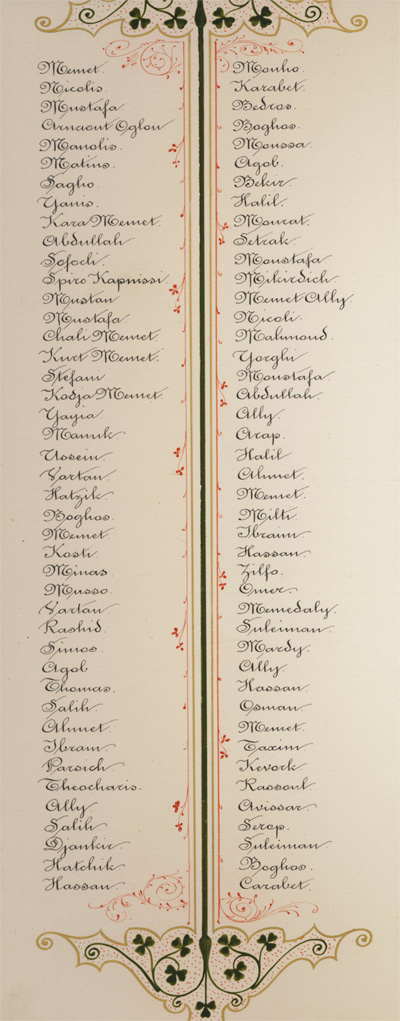 Memet.
Nicolis.
Mustafa.
Arnaout Oglou
Manolis.
Matius.
Sagho.
Yanis.
Kara Memet.
Abdullah
Sofocli.
Spiro Kapnissi
Mustan
Mustafa.
Chali Memet.
Kurt Memet.
Stefani
Kodja Memet.
Yayia.
Manuk
Ussein.
Vartan.
Hatzik.
Boghos.
Memet.
Kosti.
Minas.
Musso.
Vartan.
Rashid.
Simos.
Agob
Thomas.
Salih.
Ahmet.
Ibram.
Parsich
Theocharis.
Ally.
Salih.
Djankir.
Hatchik.
Hassan.
Monho.
Karabet.
Bedros.
Boghos.
Moussa.
Agob.
Bekir.
Halil.
Mourat.
Setrak.
Moustafa.
Mikirdich
Memet Ally.
Nicoli.
Mahmoud.
Yorghi
Moustafa.
Abdullah.
Ally.
Arap.
Halil
Ahmet.
Memet.
Milti.
Ibram.
Hassan.
Zilfo.
Omer.
Memedaly.
Suleiman.
Mardy.
Ally.
Hassan.
Osman.
Memet.
Taxim.
Kevork.
Rassoul.
Avissar.
Serop.
Suleiman.
Boghos.
Carabet.